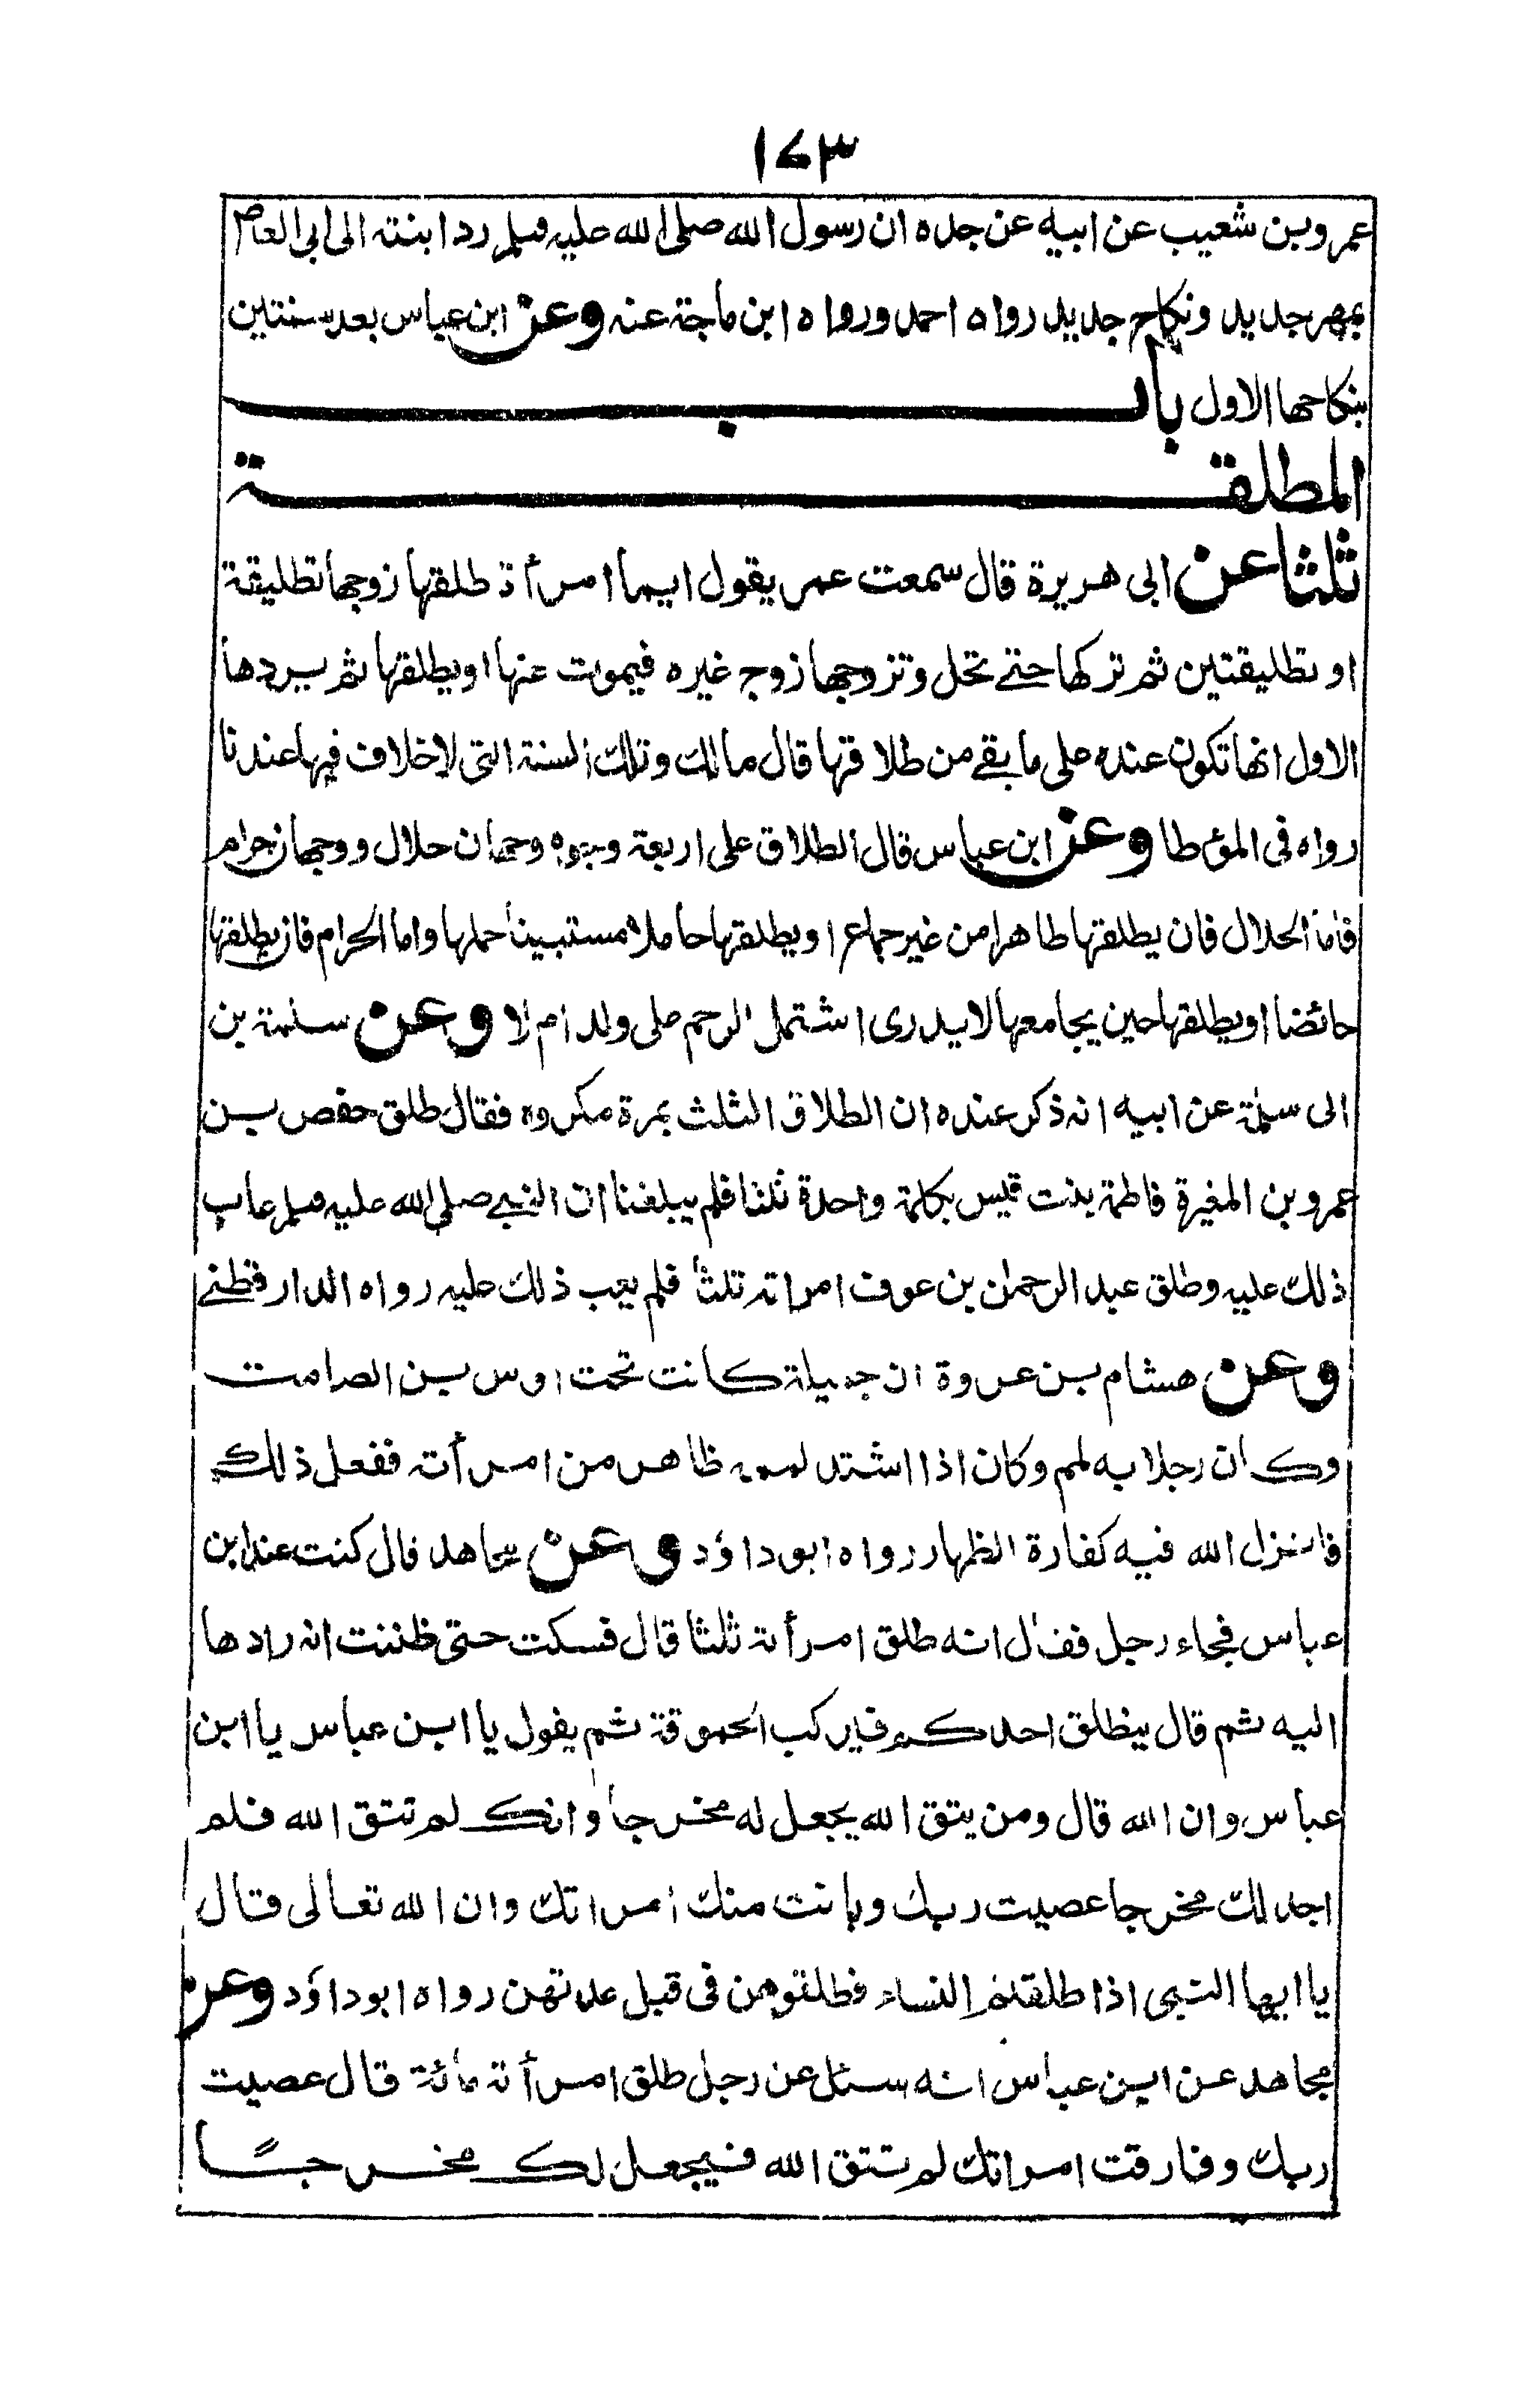 ١٧٣
عمرو بن شعيب عن ابيه عن جده ان رسول الله صلى الله عليه وسلم رد ابنته الى ابى العاص
بمهر جديد ونكاح جديد رواه احمد ورواه ابن ماجة عنه وعن ابن عباس بعد سنتين
بنكاحها الاول باب
المطلقة
ثلثا عن ابى هريرة قال سمعت عمر يقول ايما امرأة طلقها زوجها تطليقة
او تطليقتين ثم تركها حتے تحل وتزوجها زوج غيره فيموت عنها او يطلقها ثم يردها
الاول انها تكون عنده على ما بقے من طلاقها قال مالك وتلك السنة التى لا خلاف فيها عندنا
رواه فى المؤطا وعن ابن عباس قال الطلاق على اربعة وجوه وجهان حلال ووجهان حرام
فاما الحلال فان يطلقها طاهرا من غير جماع او يطلقها حاملا مستبينا حملها واما الحرام فان يطلقها
حائضا او يطلقها حين يجامعها لا يدرى اشتمل الرحم على ولد ام لا وعن سلمة بن
ابى سلمة عن ابيه انه ذكر عنده ان الطلاق الثلث بمرة مكروه فقال طلق حفص بن
عمرو بن المغيرة فاطمة بنت قيس بكلمة واحدة ثلثا فلم يبلغنا ان النبے صلى الله عليه وسلم عاب
ذلك عليه وطلق عبد الرحمٰن بن عوف امراته ثلثا فلم يعب ذلك عليه رواه الدارقطنے
وعن هشام بن عروة ان جميلة كانت تحت اوس بن الصامت
وكان رجلا به لمم وكان اذا اشتد لممه ظاهر من امرأته ففعل ذلك
فانزل الله فيه كفارة الظهار رواه ابوداؤد وعن مجاهد قال كنت عند ابن
عباس فجاء رجل فقال انه طلق امرأته ثلثا قال فسكت حتى ظننت انه رادها
اليه ثم قال ينطلق احدكم فيركب الحموقة ثم يقول يا ابن عباس يا ابن
عباس وان الله قال ومن يتق الله يجعل له مخرجا وانك لم تتق الله فلم
اجد لك مخرجا عصيت ربك وبانت منك امراتك وان الله تعالى قال
يا ايها النبى اذا طلقتم النساء فطلقوهن فى قبل عدتهن رواه ابوداؤد وعن
مجاهد عن ابن عباس انه سئل عن رجل طلق امرأته مائة قال عصيت
ربك وفارقت امراتك لم تتق الله فيجعل لك مخرجًا